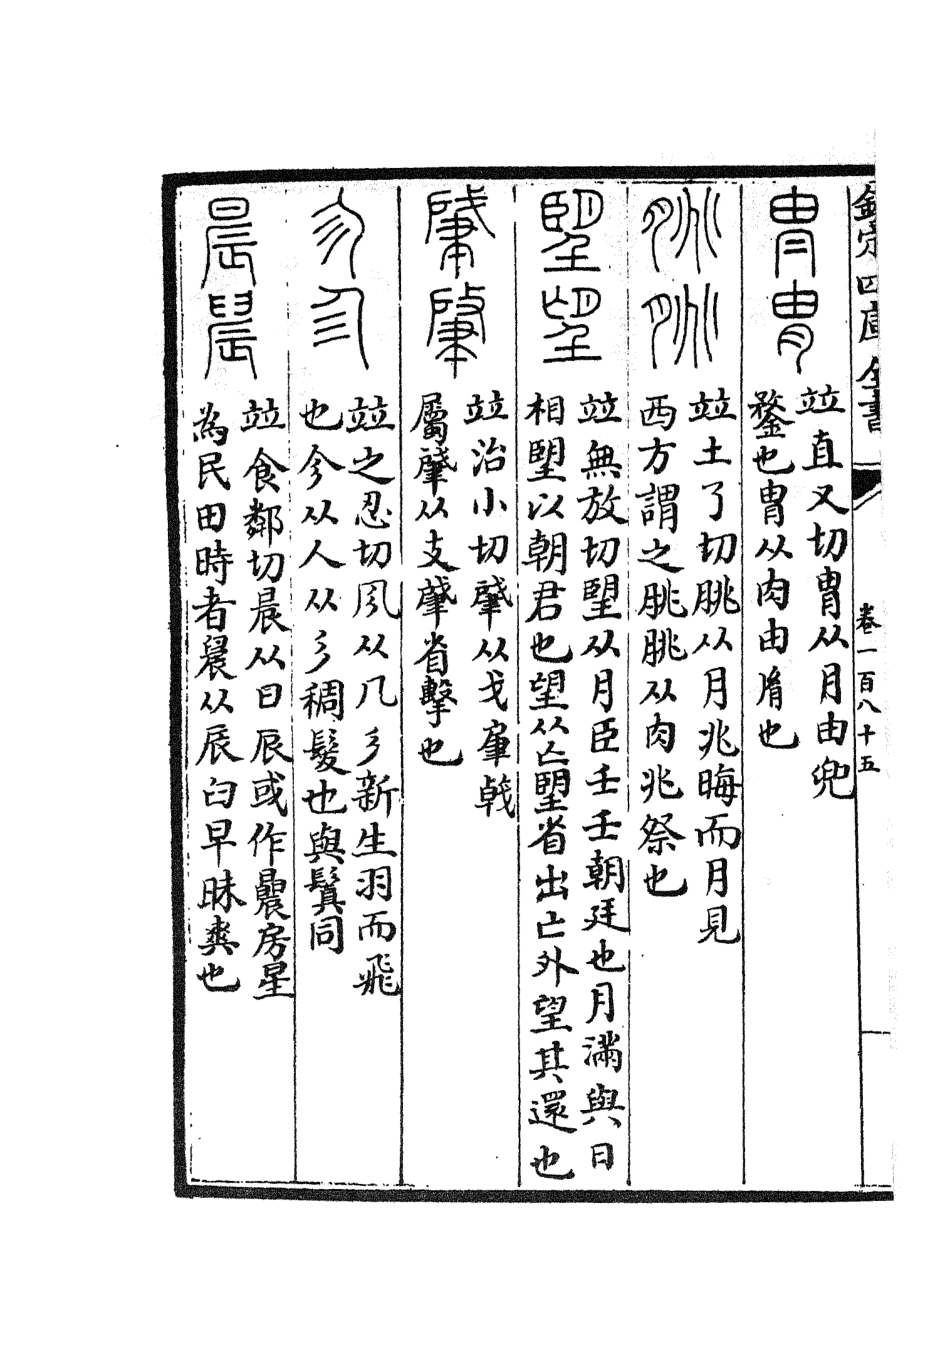 欽定四庫全書
卷一百八十五
竝直又切冑从月由兜
鍪也胄从肉由脜也
竝土了切朓从月兆晦而月見
西方謂之朓朓从肉兆祭也
竝無放切朢从月臣壬壬朝廷也月滿與日
相朢以朝君也望从亡朢省出亡外望其還也
竝治小切肈从戈肁戟
屬肇从支肈省擊也
竝之忍切㐱从几彡新生羽而飛
也㐱从人从彡稠髮也與鬒同
竝食鄰切晨从日辰或作曟房星
為民田時者晨从辰臼早昧爽也